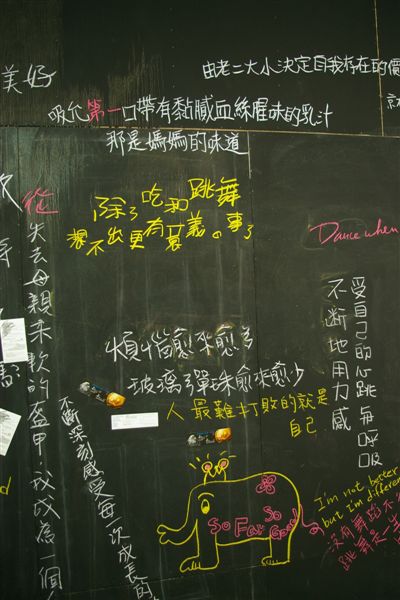 美好
由老二大小決定自我存在的價
吸允第一口帶有黏膩血絲腥味的乳汁
那是媽媽的味道
除了吃和跳舞
想不出更有意義的事了
Dance when
從失去母親柔軟的盔甲,我成為一個
受自己的心跳每一個呼吸
不斷地用力感
煩惱愈來愈多
玻璃彈珠愈來愈少
人最難打敗的就是
自己
不斷深刻感受每一次成長的
So Far So Good!
I'm not better
but I'm different
沒有舞蹈
跳舞是